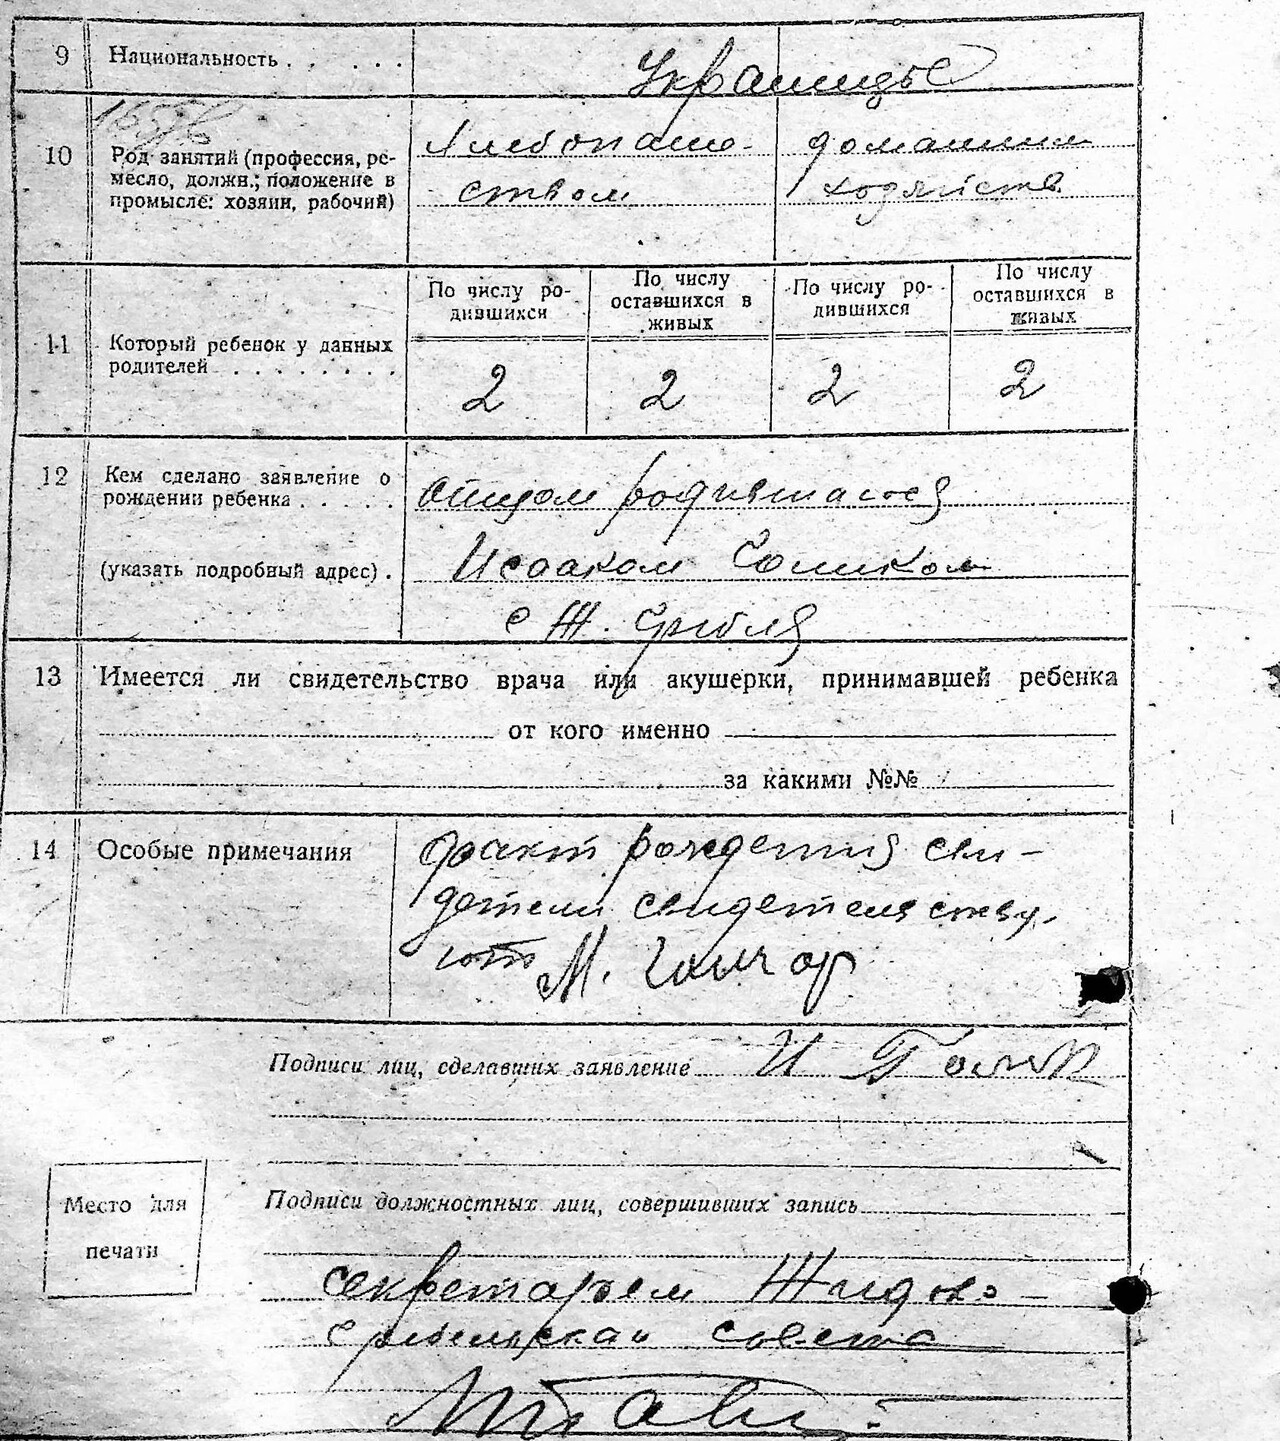 9 Национальность . . . . . Украинцы
10 Род занятий (профессия, ре-
месло, должн.; положение в
промысле: хозяин, рабочий)
Хлебопаше-
ством
домашним
хозяйств
По числу ро-
дившихся
По числу
оставшихся в
живых
По числу ро-
дившихся
По числу
оставшихся в
живых
11 Который ребенок у данных
родителей . . . . . . . .
2 2 2 2
12 Кем сделано заявление о
рождении ребенка . . . . .
(указать подробный адрес) .
отцом родившагося
Исааком
с Ж.
13 Имеется ли свидетельство врача или акушерки, принимавшей ребенка
от кого именно
за какими №№
14 Особые примечания
факт рождения сви-
детели свидетельству-
ют М. Гончар
Подписи лиц, сделавших заявление И
Подписи должностных лиц, совершивших запись
Место для
печати
секретарем Жидов-
совета